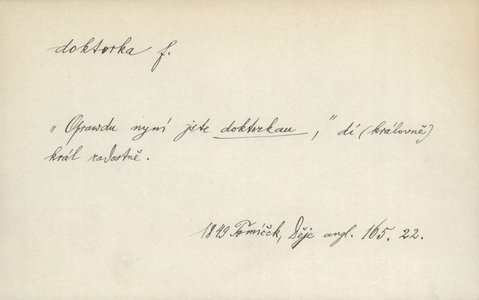 doktorka f.
„Opravdu nyní jste doktorkau," dí (králowně)
král radostně.
1849 Tomíček, Děje angl. 165. 22.